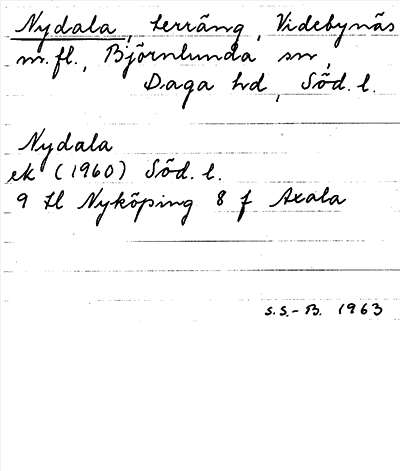 Nydala, terräng, Videbynäs
m.fl., Björnlunda sn,
Daga hd, Söd. l.
Nydala
ek (1960) Söd. l.
9 H Nyköping 8 f Axala
S.S.-B. 1963